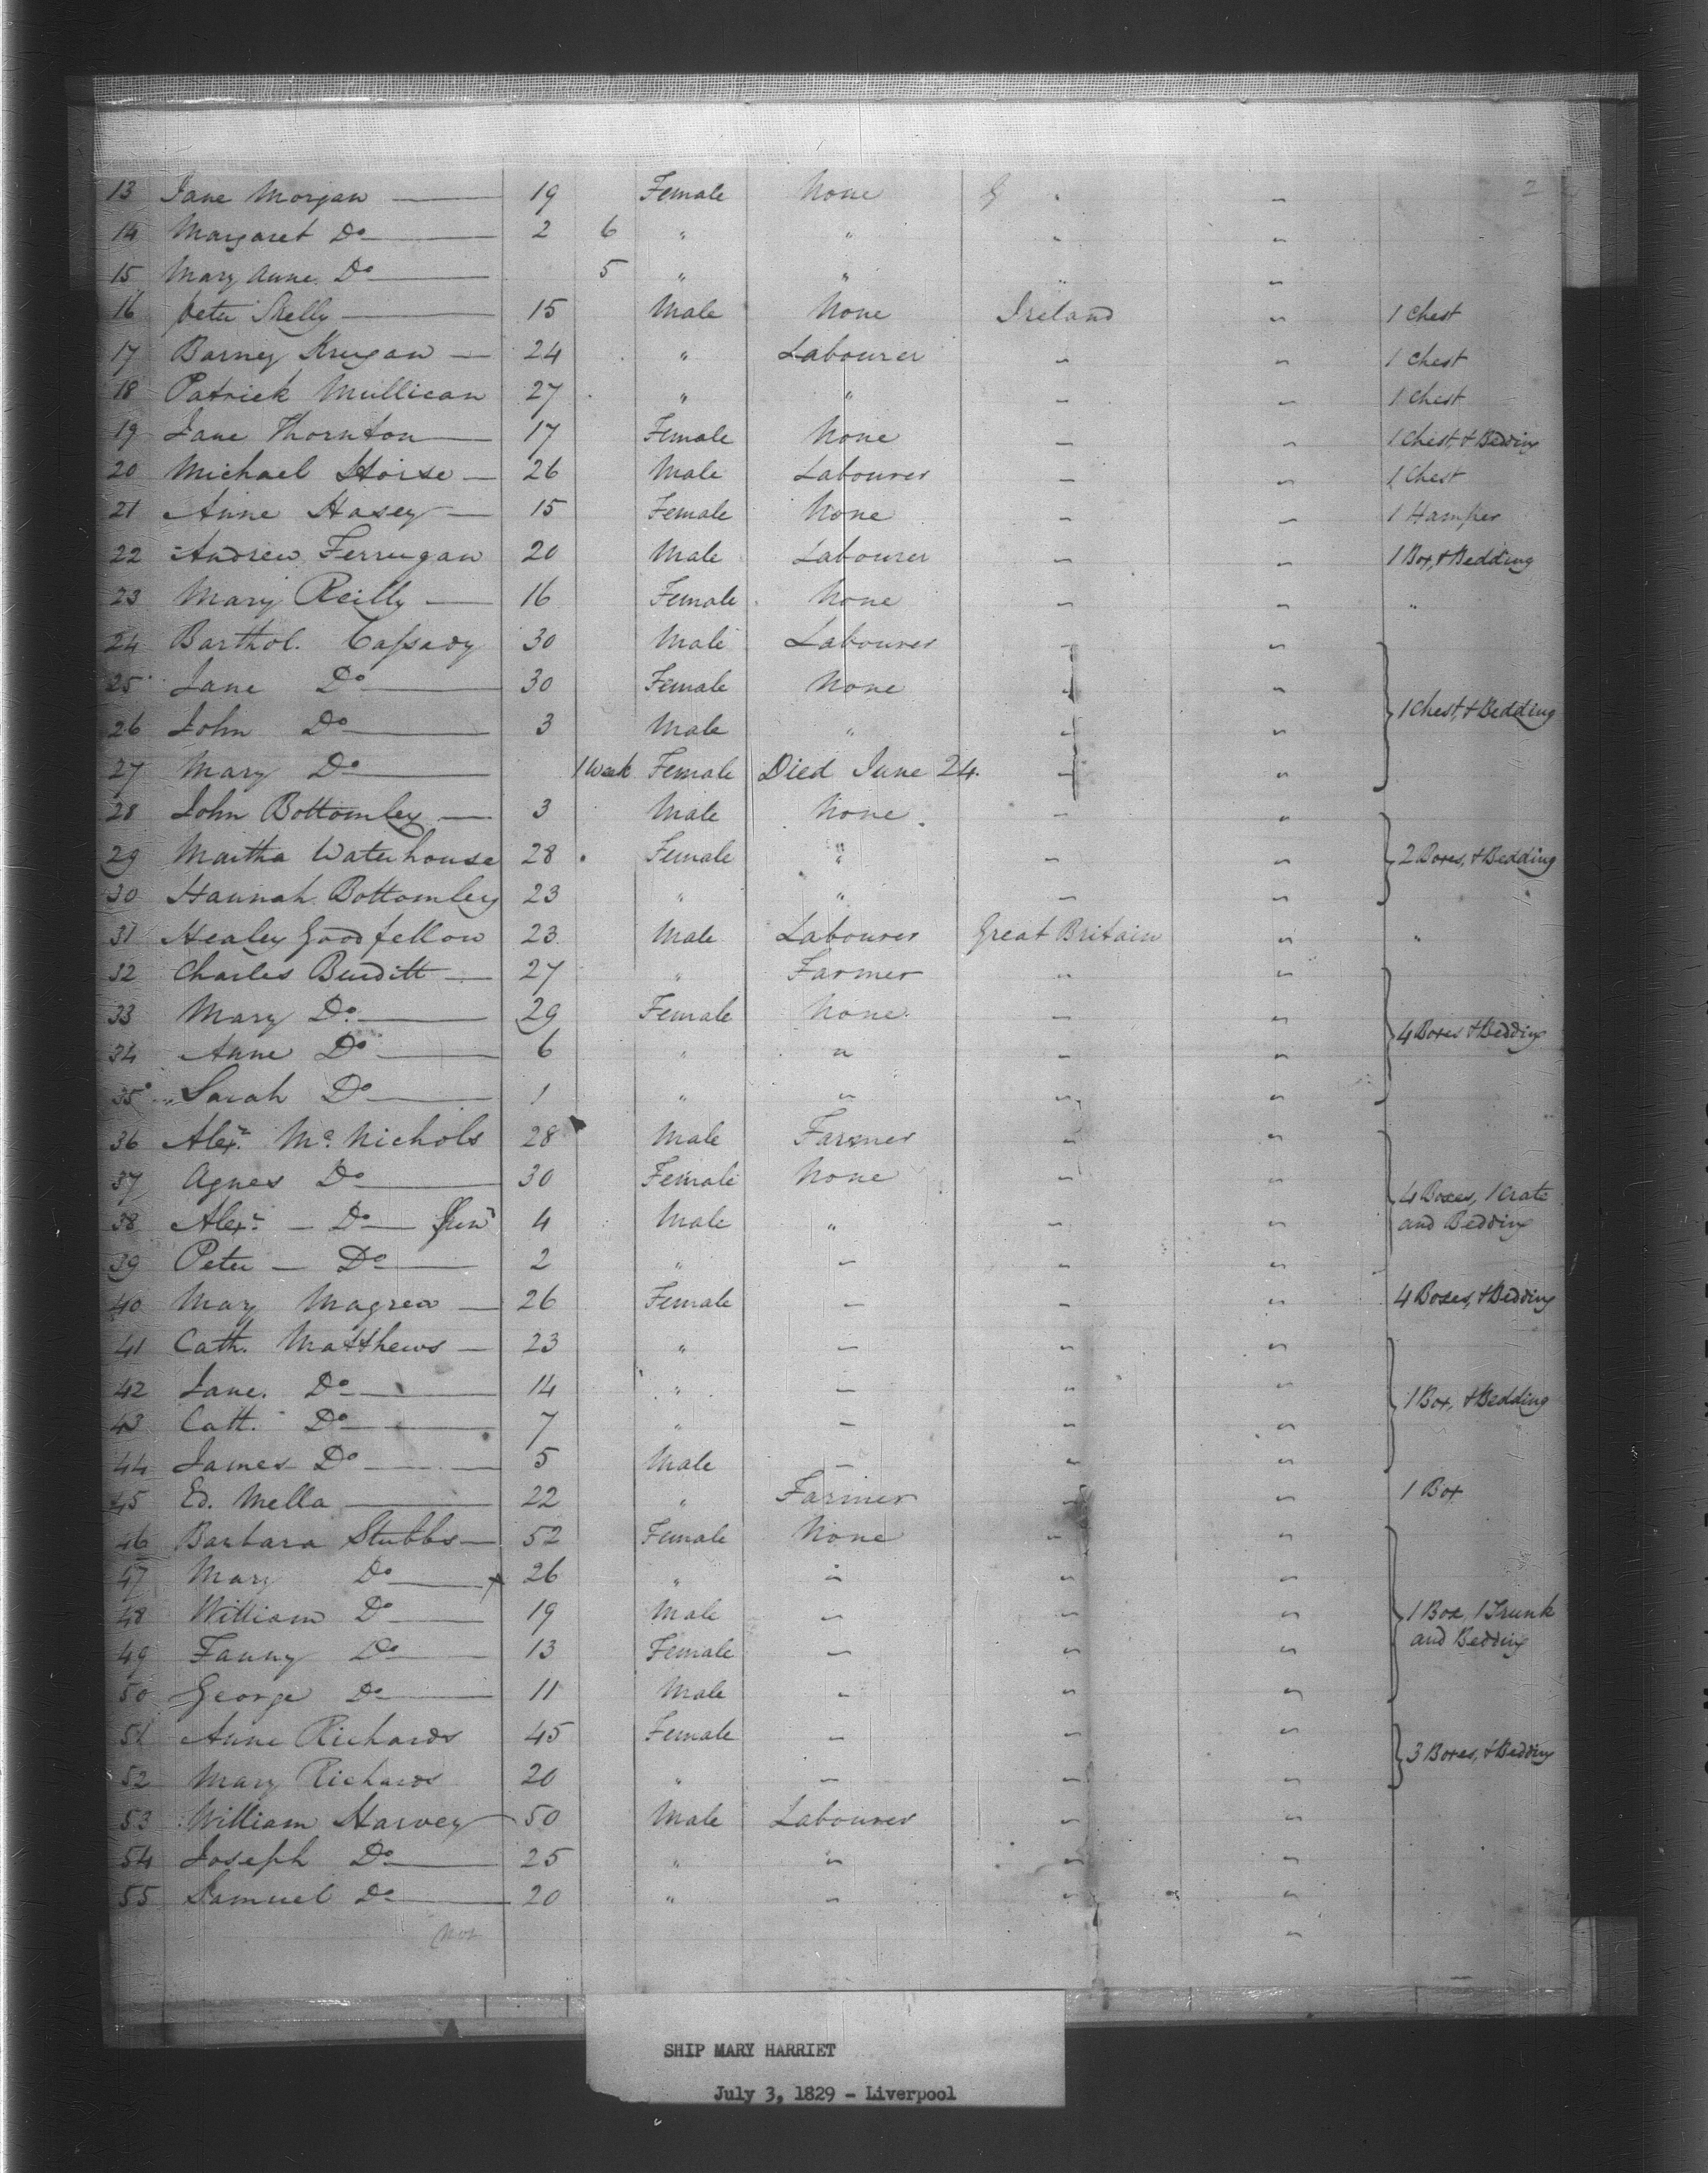 2
13 Jane Morgan 19 Female None G " "
14 Margaret Do 2 6 " " " "
15 Mary Anne Do 5 " " " "
16 Peter Skelly 15 Male None Ireland " 1 Chest
17 Barney 24 " Labourer " " 1 Chest
18 Patrick Mullican 27 " " " " 1 Chest
19 Jane Thornton 17 Female None " " 1 Chest, & Bedding
20 Michael 26 Male Labourer " " 1 Chest
21 Anne Hasey 15 Female None " " 1 Hamper
22 Andrew Ferrugan 20 Male Labourer " " 1 Box, & Bedding
23 Mary Reilly 16 Female None " " "
24 Barthol. Cassady 30 Male Labourer " "
25 Jane Do 30 Female None " "
26 John Do 3 Male " " " 1 Chest, & Bedding
27 Mary Do 1 Week Female Died June 24. " "
28 John Bottomley 3 Male None " "
29 Martha Waterhouse 28 Female " " " 2 Boxes, & Bedding
30 Hannah Bottomley 23 " " " "
31 Healey Goodfellow 23 Male Labourer Great Britain " "
32 Charles Burditt 27 " Farmer " "
33 Mary Do 29 Female None " "
34 Anne Do 6 " " " " 4 Boxes & Bedding
35 Sarah Do 1 " " " "
36 Alexr. Mc. Nichols 28 Male Farmer " "
37 Agnes Do 30 Female None " "
38 Alexr. Do Junr 4 Male " " " 4 Boxes, 1 Crate and Bedding
39 Peter Do 2 " " " "
40 Mary Magrea 26 Female " " " 4 Boxes, & Bedding
41 Cath. Matthews 23 " " " "
42 Jane. Do 14 " " " "
43 Cath. Do 7 " " " " 1 Box, & Bedding
44 James Do 5 Male " " "
45 Ed. Mella 22 " Farmer " " 1 Box
46 Barbara Stubbs 52 Female None " "
47 Mary Do 26 " " " "
48 William Do 19 Male " " " 1 Box, 1 Trunk
49 Fanny Do 13 Female " " " and Bedding
50 George Do 11 Male " " "
51 Anne Richards 45 Female " " "
52 Mary Richards 20 " " " " 3 Boxes, & Bedding
53 William Harvey 50 Male Labourer " "
54 Joseph Do 25 " " " "
55 Samuel Do 20 " " " "
"
SHIP MARY HARRIET
July 3, 1829 - Liverpool